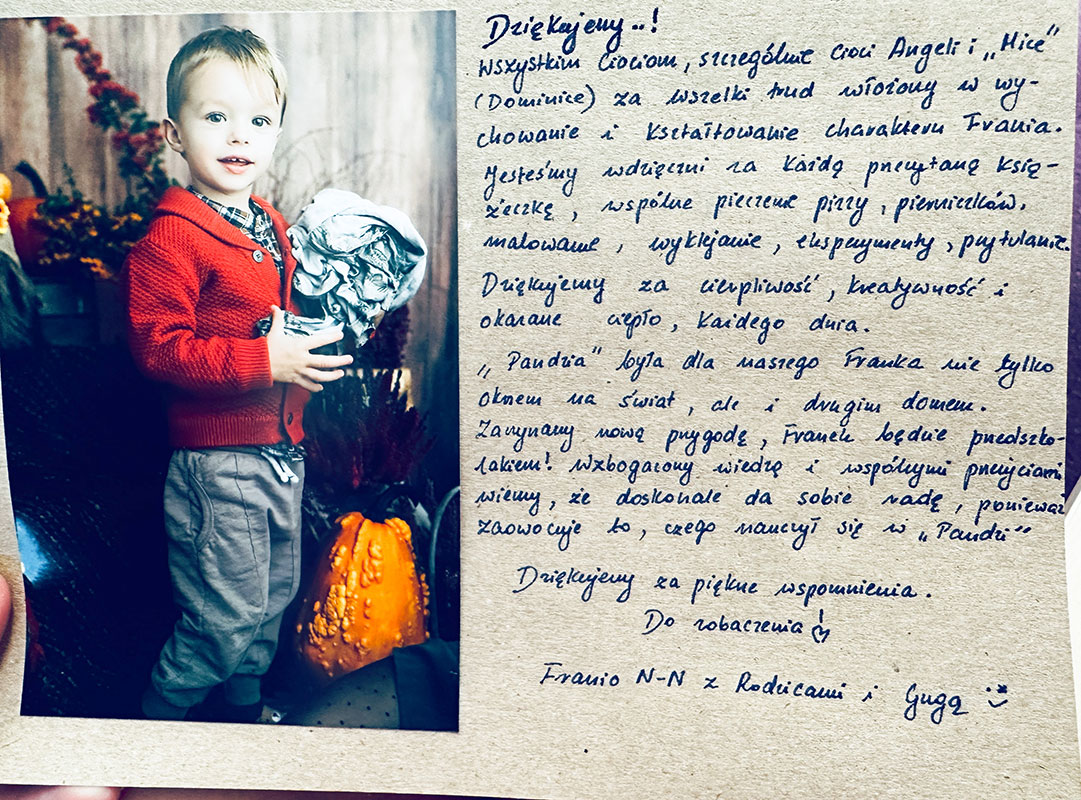 Dziękujemy..!
wszystkim Ciociom, szczególnie Cioci Angeli i „Mice”
(Dominice) za wszelki trud włożony w wy-
chowanie i kształtowanie charakteru Frania.
Jesteśmy wdzięczni za każdą przeczytaną książ-
żeczkę, wspólne pieczenie pizzy, pierniczków,
malowanie, wyklejanie, eksperymenty, przytulanie.
Dziękujemy za cierpliwość, kreatywność i
okazane ciepło, każdego dnia.
„Pandzia” była dla naszego Franka nie tylko
oknem na świat, ale i drugim domem.
Zaczynamy nową przygodę, Franek będzie przedszko-
lakiem! Wzbogacony wiedzą i wspólnymi przeżyciami
wiemy, że doskonale da sobie radę, ponieważ
zaowocuje to, czego nauczył się w „Pandzi”
Dziękujemy za piękne wspomnienia.
Do zobaczenia!
Franio N-N z Rodzicami i Gugą